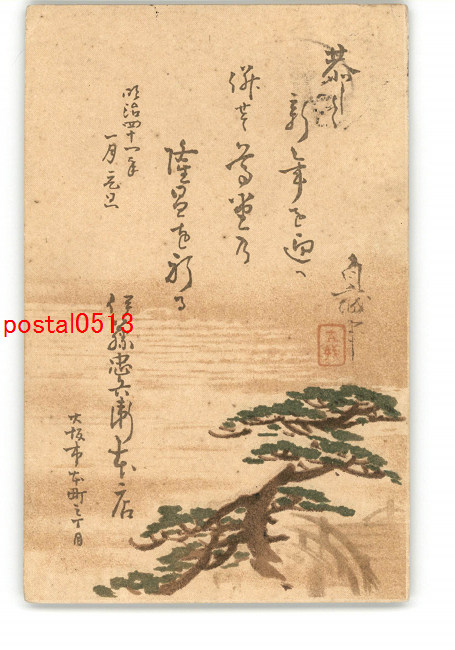 恭しく
新年を迎へ
併せて尊堂乃
隆昌を祈る
明治四十一年
一月元旦
伊藤忠兵衛本店
大阪市本町二丁目
postal0513